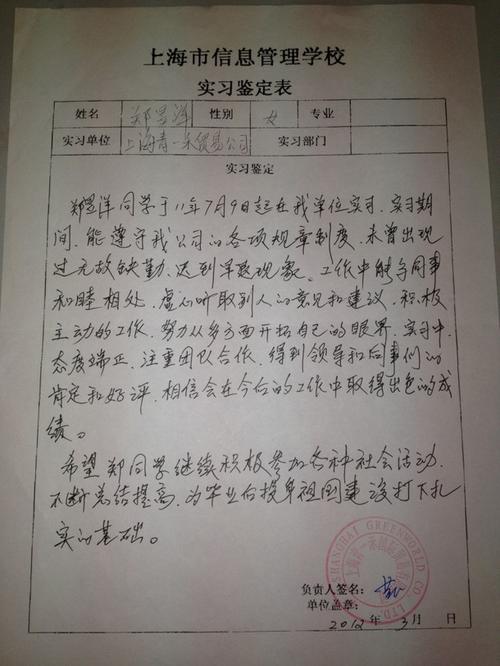 上海市信息管理学校
实习鉴定表
姓名 郑昱洋 性别 女 专业
实习单位 上海青一禾贸易公司 实习部门
实习鉴定
郑昱洋同学于11年7月9日起在我单位实习，实习期
间，能遵守我公司的各项规章制度，未曾出现
过无故缺勤、迟到早退现象。工作中能与同事
和睦相处，虚心听取别人的意见和建议，积极
主动的工作，努力从多方面开拓自己的眼界，实习中，
态度端正，注重团队合作，得到领导和同事们的
肯定和好评，相信会在今后的工作中取得出色的成
绩。
希望郑同学继续积极参加各种社会活动，
不断总结提高，为毕业后投身祖国建设打下扎
实的基础。
SHANGHAI GREENWORLD CO., LTD.
负责人签名：
单位盖章：
2012年3月 日